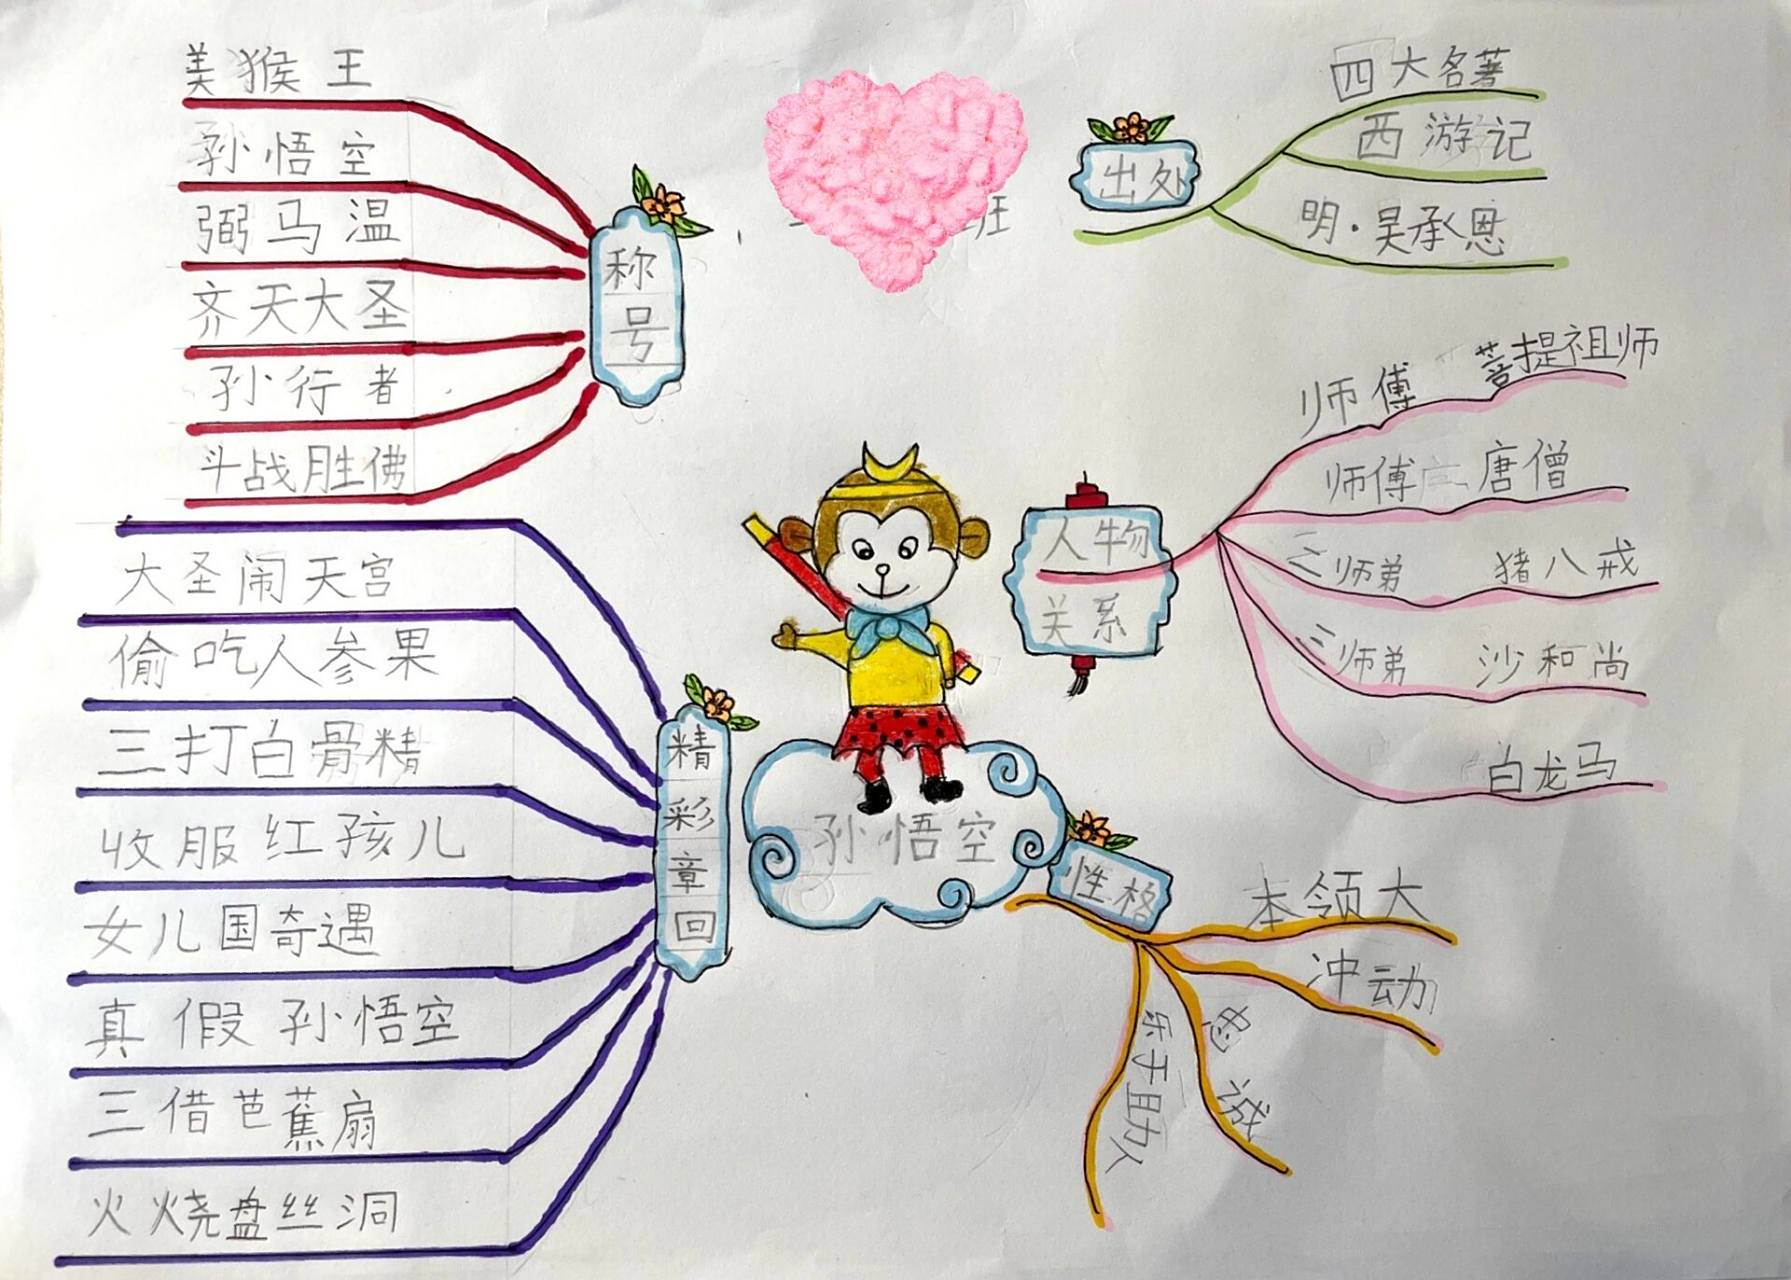 美猴王
孙悟空
弼马温
齐天大圣
孙行者
斗战胜佛
称号
大圣闹天宫
偷吃人参果
三打白骨精
收服红孩儿
女儿国奇遇
真假孙悟空
三借芭蕉扇
火烧盘丝洞
精彩章回
孙悟空
班
出处
四大名著
西游记
明·吴承恩
人物
关系
师傅 菩提祖师
师傅 唐僧
二师弟 猪八戒
三师弟 沙和尚
白龙马
性格
本领大
冲动
忠诚
乐于助人